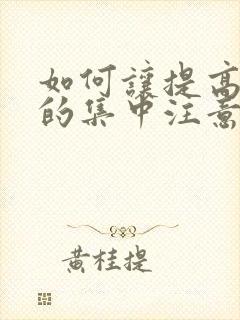 如何讓提高
的集中注意
黃桂提